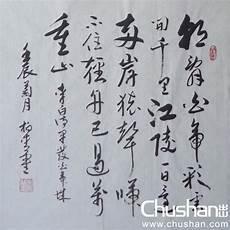 朝辞白帝彩云
间千里江陵一日还
两岸猿聲啼
不住轻舟已过万
重山 李白诗早发白帝城
壬辰菊月
Chushan出
www.chushan.com